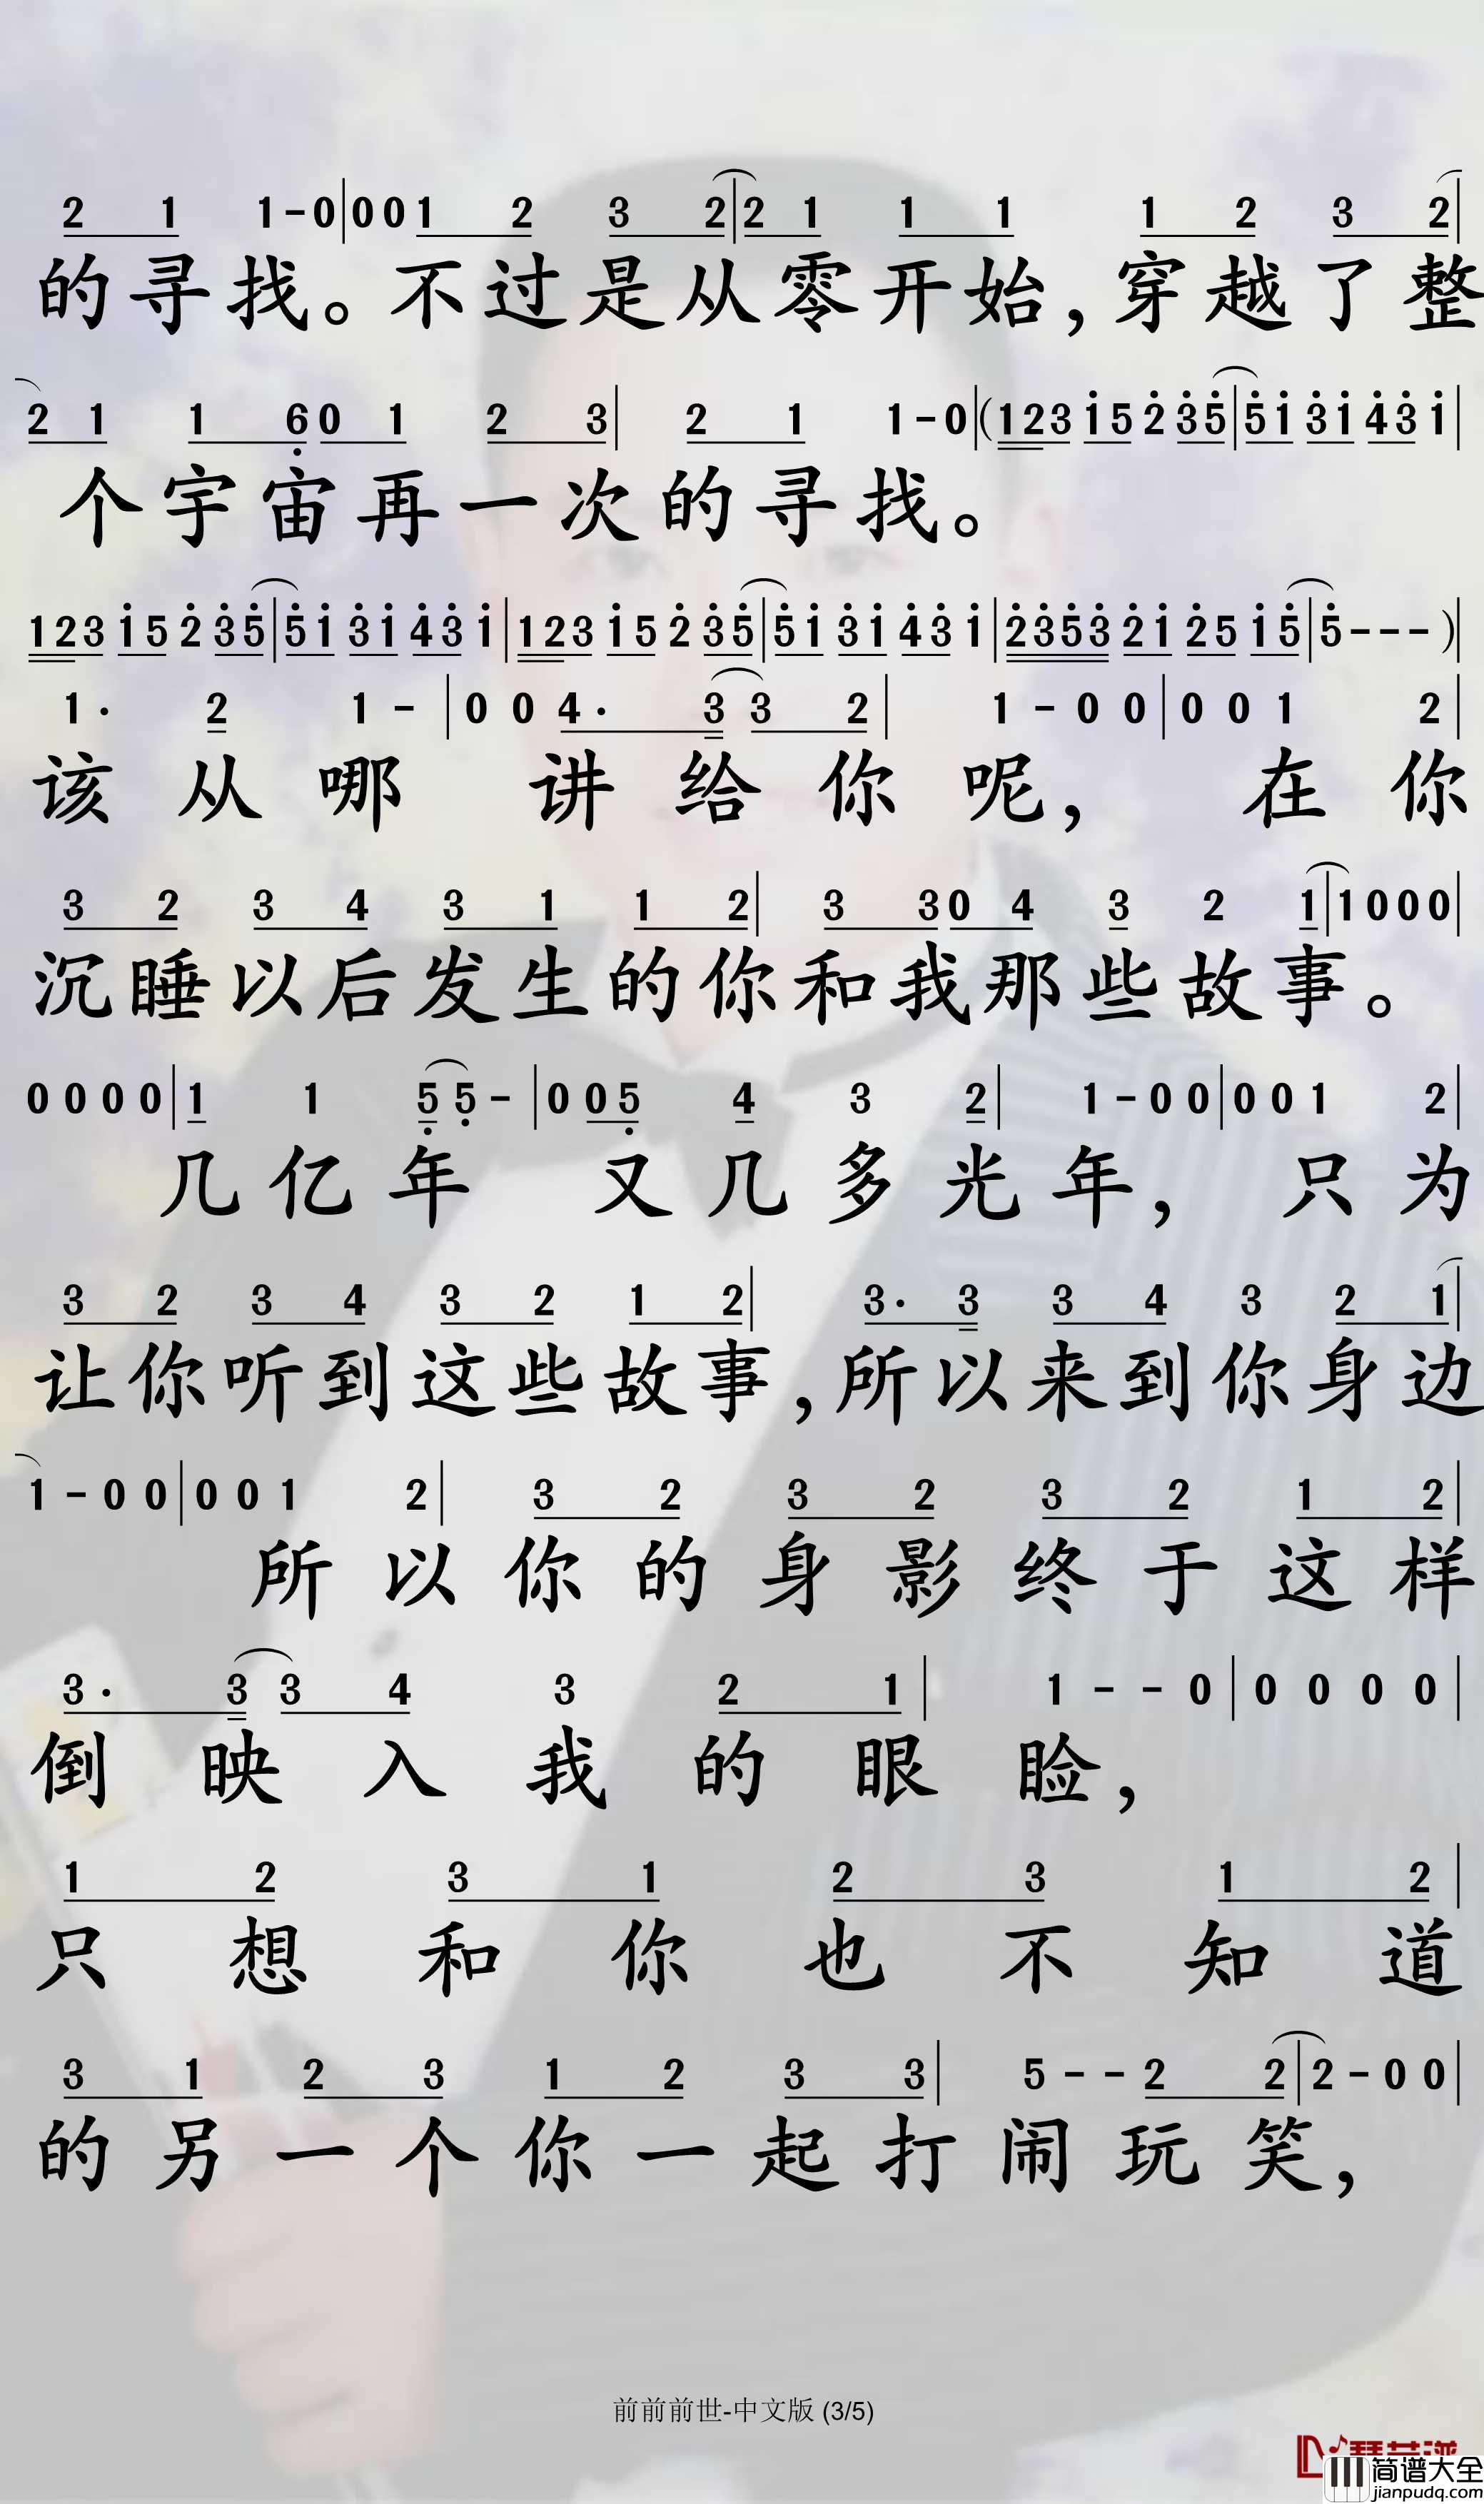 2 1 1-0|0 0 1 2 3 2|2 1 1 1 1 2 3 2|
的寻找。不过是从零开始,穿越了整
2 1 1 6 0 1 2 3| 2 1 1-0|(1 2 3 1 5 2 3 5|5 1 3 1 4 3 1|
个宇宙再一次的寻找。
1 2 3 1 5 2 3 5|5 1 3 1 4 3 1|1 2 3 1 5 2 3 5|5 1 3 1 4 3 1|2 3 5 3 2 1 2 5 1 5|5---)|
1· 2 1 - |0 0 4· 3 3 2| 1 - 0 0|0 0 1 2|
该从哪 讲给你呢, 在你
3 2 3 4 3 1 1 2| 3 3 0 4 3 2 1|1 0 0 0|
沉睡以后发生的你和我那些故事。
0 0 0 0|1 1 5 5 -|0 0 5 4 3 2| 1 - 0 0|0 0 1 2|
几亿年 又几多光年, 只为
3 2 3 4 3 2 1 2| 3· 3 3 4 3 2 1|
让你听到这些故事,所以来到你身边
1 - 0 0|0 0 1 2| 3 2 3 2 3 2 1 2|
所以你的身影终于这样
3· 3 3 4 3 2 1| 1 - - 0|0 0 0 0|
倒映入我的眼睑,
1 2 3 1 2 3 1 2|
只想和你也不知道
3 1 2 3 1 2 3 3| 5 - - 2 2|2 - 0 0|
的另一个你一起打闹玩笑,
前前前世-中文版 (3/5)
简谱大全
jianpudq.com